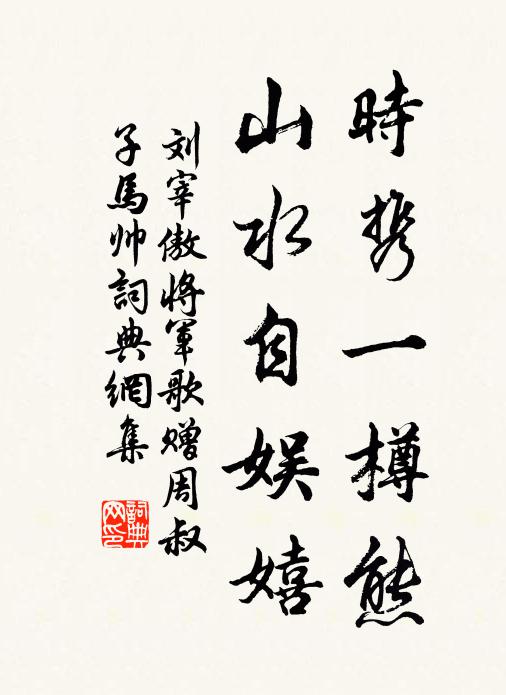 時携一樽熊
山水自娱嬉
刘宰傲將軍歌赠周叔
子馬帅詞典網集
詞典网印